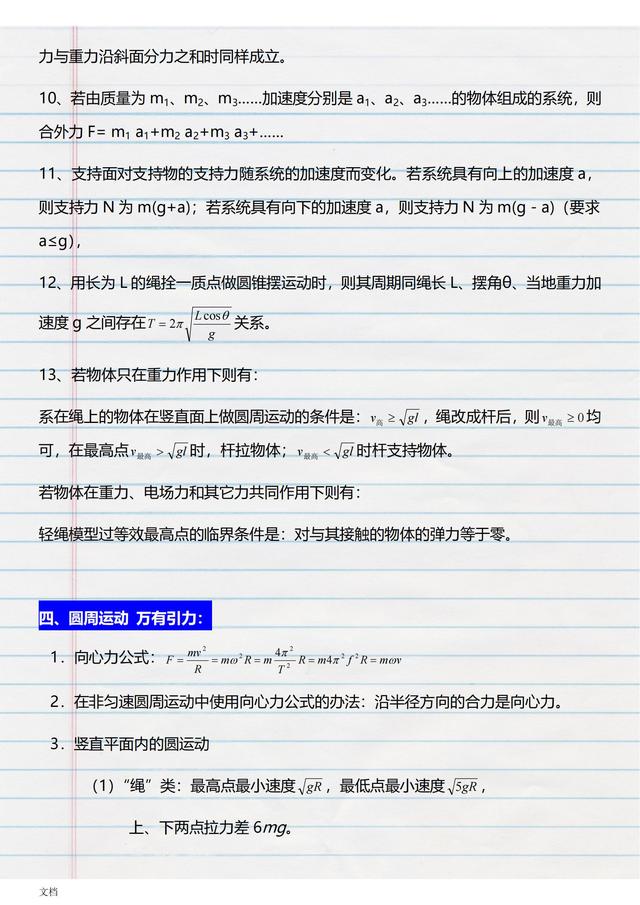 力与重力沿斜面分力之和时同样成立。
10、若由质量为 m₁、m₂、m₃……加速度分别是 a₁、a₂、a₃……的物体组成的系统，则
合外力 F= m₁ a₁+m₂ a₂+m₃ a₃+……
11、支持面对支持物的支持力随系统的加速度而变化。若系统具有向上的加速度 a，
则支持力 N 为 m(g+a)；若系统具有向下的加速度 a，则支持力 N 为 m(g－a)（要求
a≤g），
12、用长为 L 的绳拴一质点做圆锥摆运动时，则其周期同绳长 L、摆角θ、当地重力加
速度 g 之间存在 T = 2π√(L cosθ / g) 关系。
13、若物体只在重力作用下则有：
系在绳上的物体在竖直面上做圆周运动的条件是：v高 ≥ √gl ，绳改成杆后，则 v最高 ≥ 0 均
可，在最高点 v最高 > √gl 时，杆拉物体；v最高 < √gl 时杆支持物体。
若物体在重力、电场力和其它力共同作用下则有：
轻绳模型过等效最高点的临界条件是：对与其接触的物体的弹力等于零。
四、圆周运动 万有引力：
1．向心力公式：F = mv²/R = mω²R = m 4π²/T² R = m4π²f²R = mωv
2．在非匀速圆周运动中使用向心力公式的办法：沿半径方向的合力是向心力。
3．竖直平面内的圆运动
（1）“绳”类：最高点最小速度 √gR ，最低点最小速度 √5gR ，
上、下两点拉力差 6mg。
文档